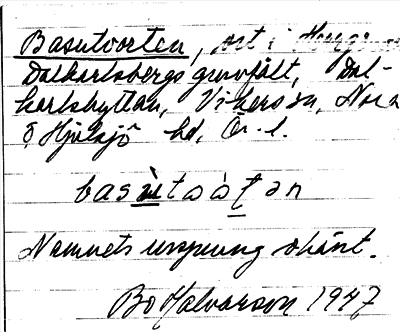 Basutorten, ort i
Dalkarlsbergs gruvfält, Dal-
karlshyttan, Vikers sn, Nora
o Hjulsjö hd, Ör. l.
basùtoòṭən
Namnets ursprung okänt.
Bo Halvarson 1947